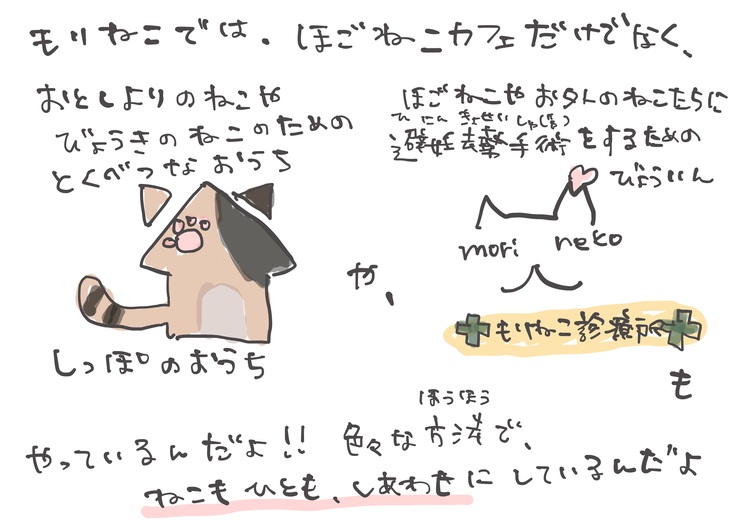 もりねこでは、ほごねこカフェだけでなく、
おとしよりのねこや
びょうきのねこのための
とくべつなおうち
しっぽのおうち
や、
ほごねこやお外のねこたちに
ひにんきょせいしゅじゅつ
避妊去勢手術をするための
びょういん
mori neko
もりねこ診療所
も
やっているんだよ!!
ほうほう
色々な方法で、
ねこもひとも、しあわせにしているんだよ